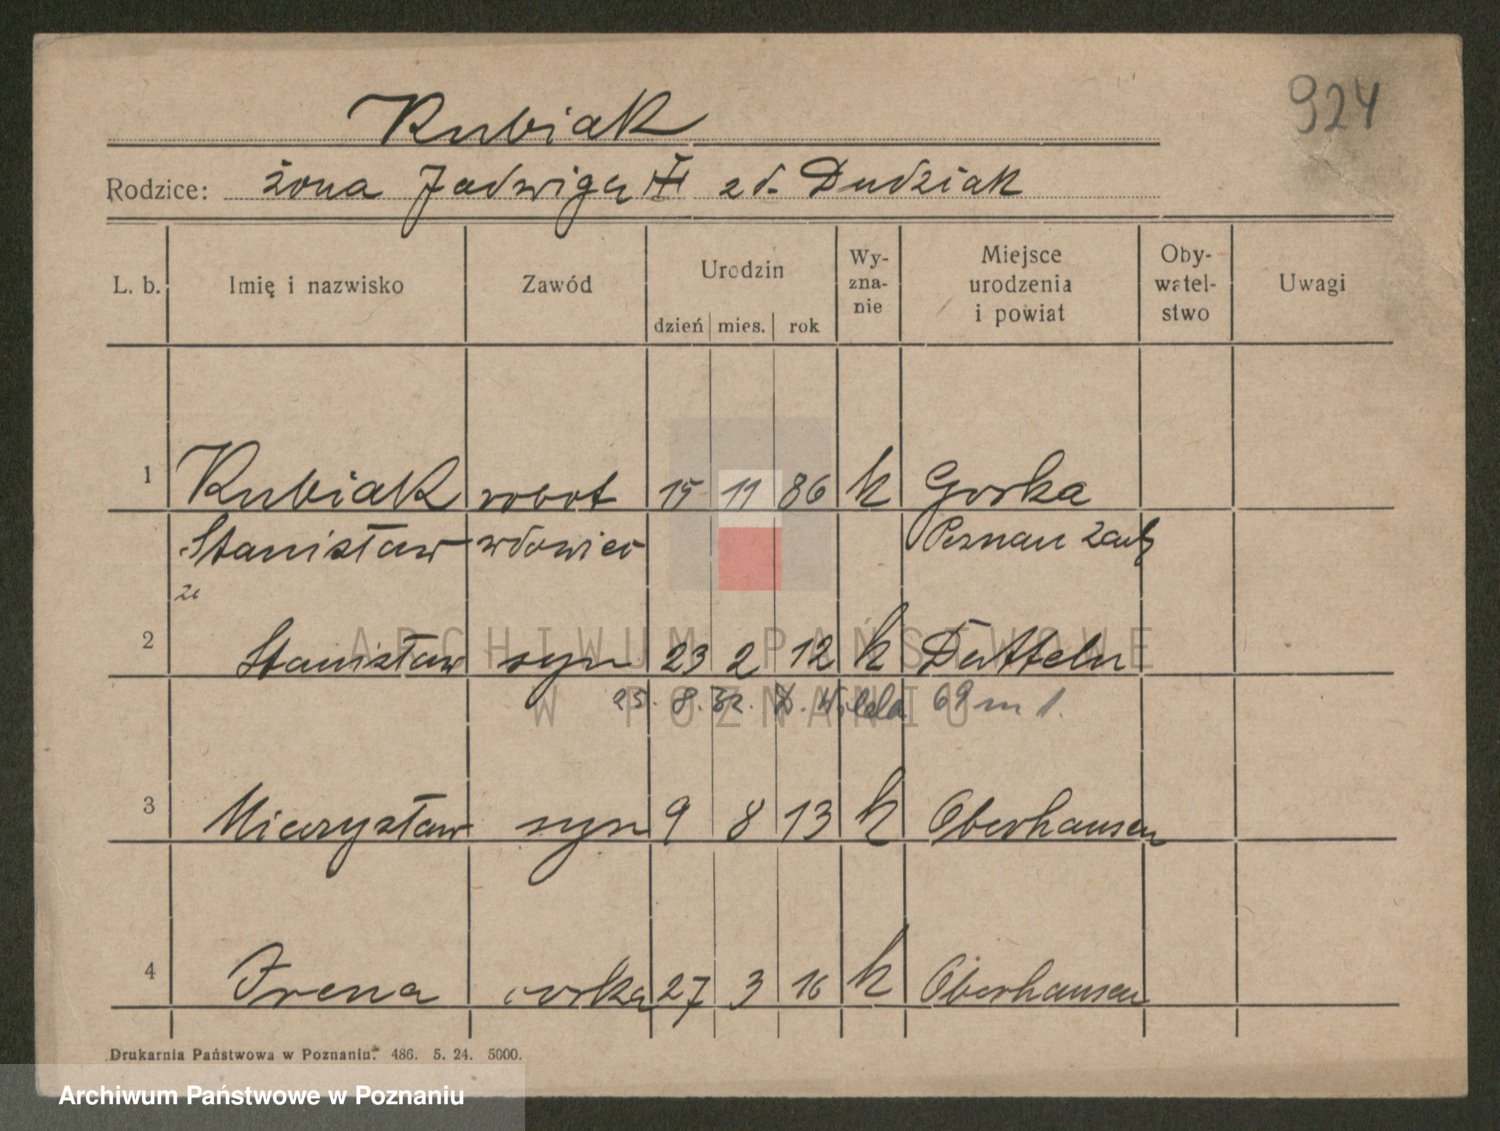 924
Kubiak
Rodzice: żona Jadwiga zd. Dudziak
L. b. Imię i nazwisko Zawód Urodzin dzień mies. rok Wy-zna-nie Miejsce urodzenia i powiat Oby-watel-stwo Uwagi
1 Kubiak robot 15 11 86 k Gorka
Stanisław wdowiec Poznań zach
2 Stanisław syn 23 2 12 k Datteln
25. 8. 32. Wilda 69 m 1.
3 Mieczysław syn 9 8 13 k Oberhausen
4 Irena córka 27 3 16 k Oberhausen
Drukarnia Państwowa w Poznaniu. 486. 5. 24. 5000.
ARCHIWUM PAŃSTWOWE
W POZNANIU
Archiwum Państwowe w Poznaniu